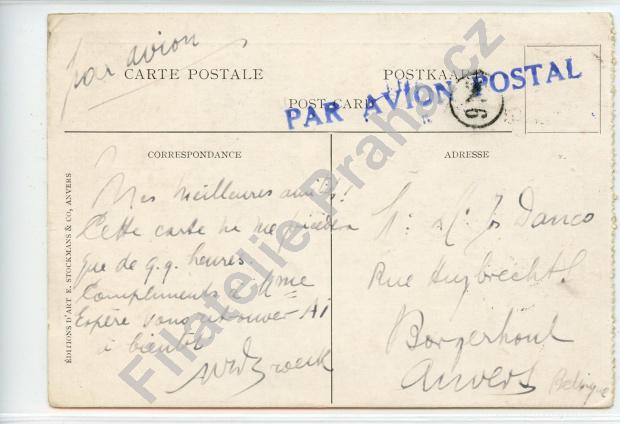 par avion
CARTE POSTALE
POSTKAART
POST CARD
PAR AVION POSTAL
6
CORRESPONDANCE
ADRESSE
Mes meilleures
Cette carte ne me
que de q.q. heures.
Compliments à Mme
Espère vous retrouver
à bientôt
J. Danco
Rue Huybrechts
Borgerhout
Anvers
Belgique
ÉDITIONS D'ART E. STOCKMANS & CO, ANVERS
Filatelie Praha.cz